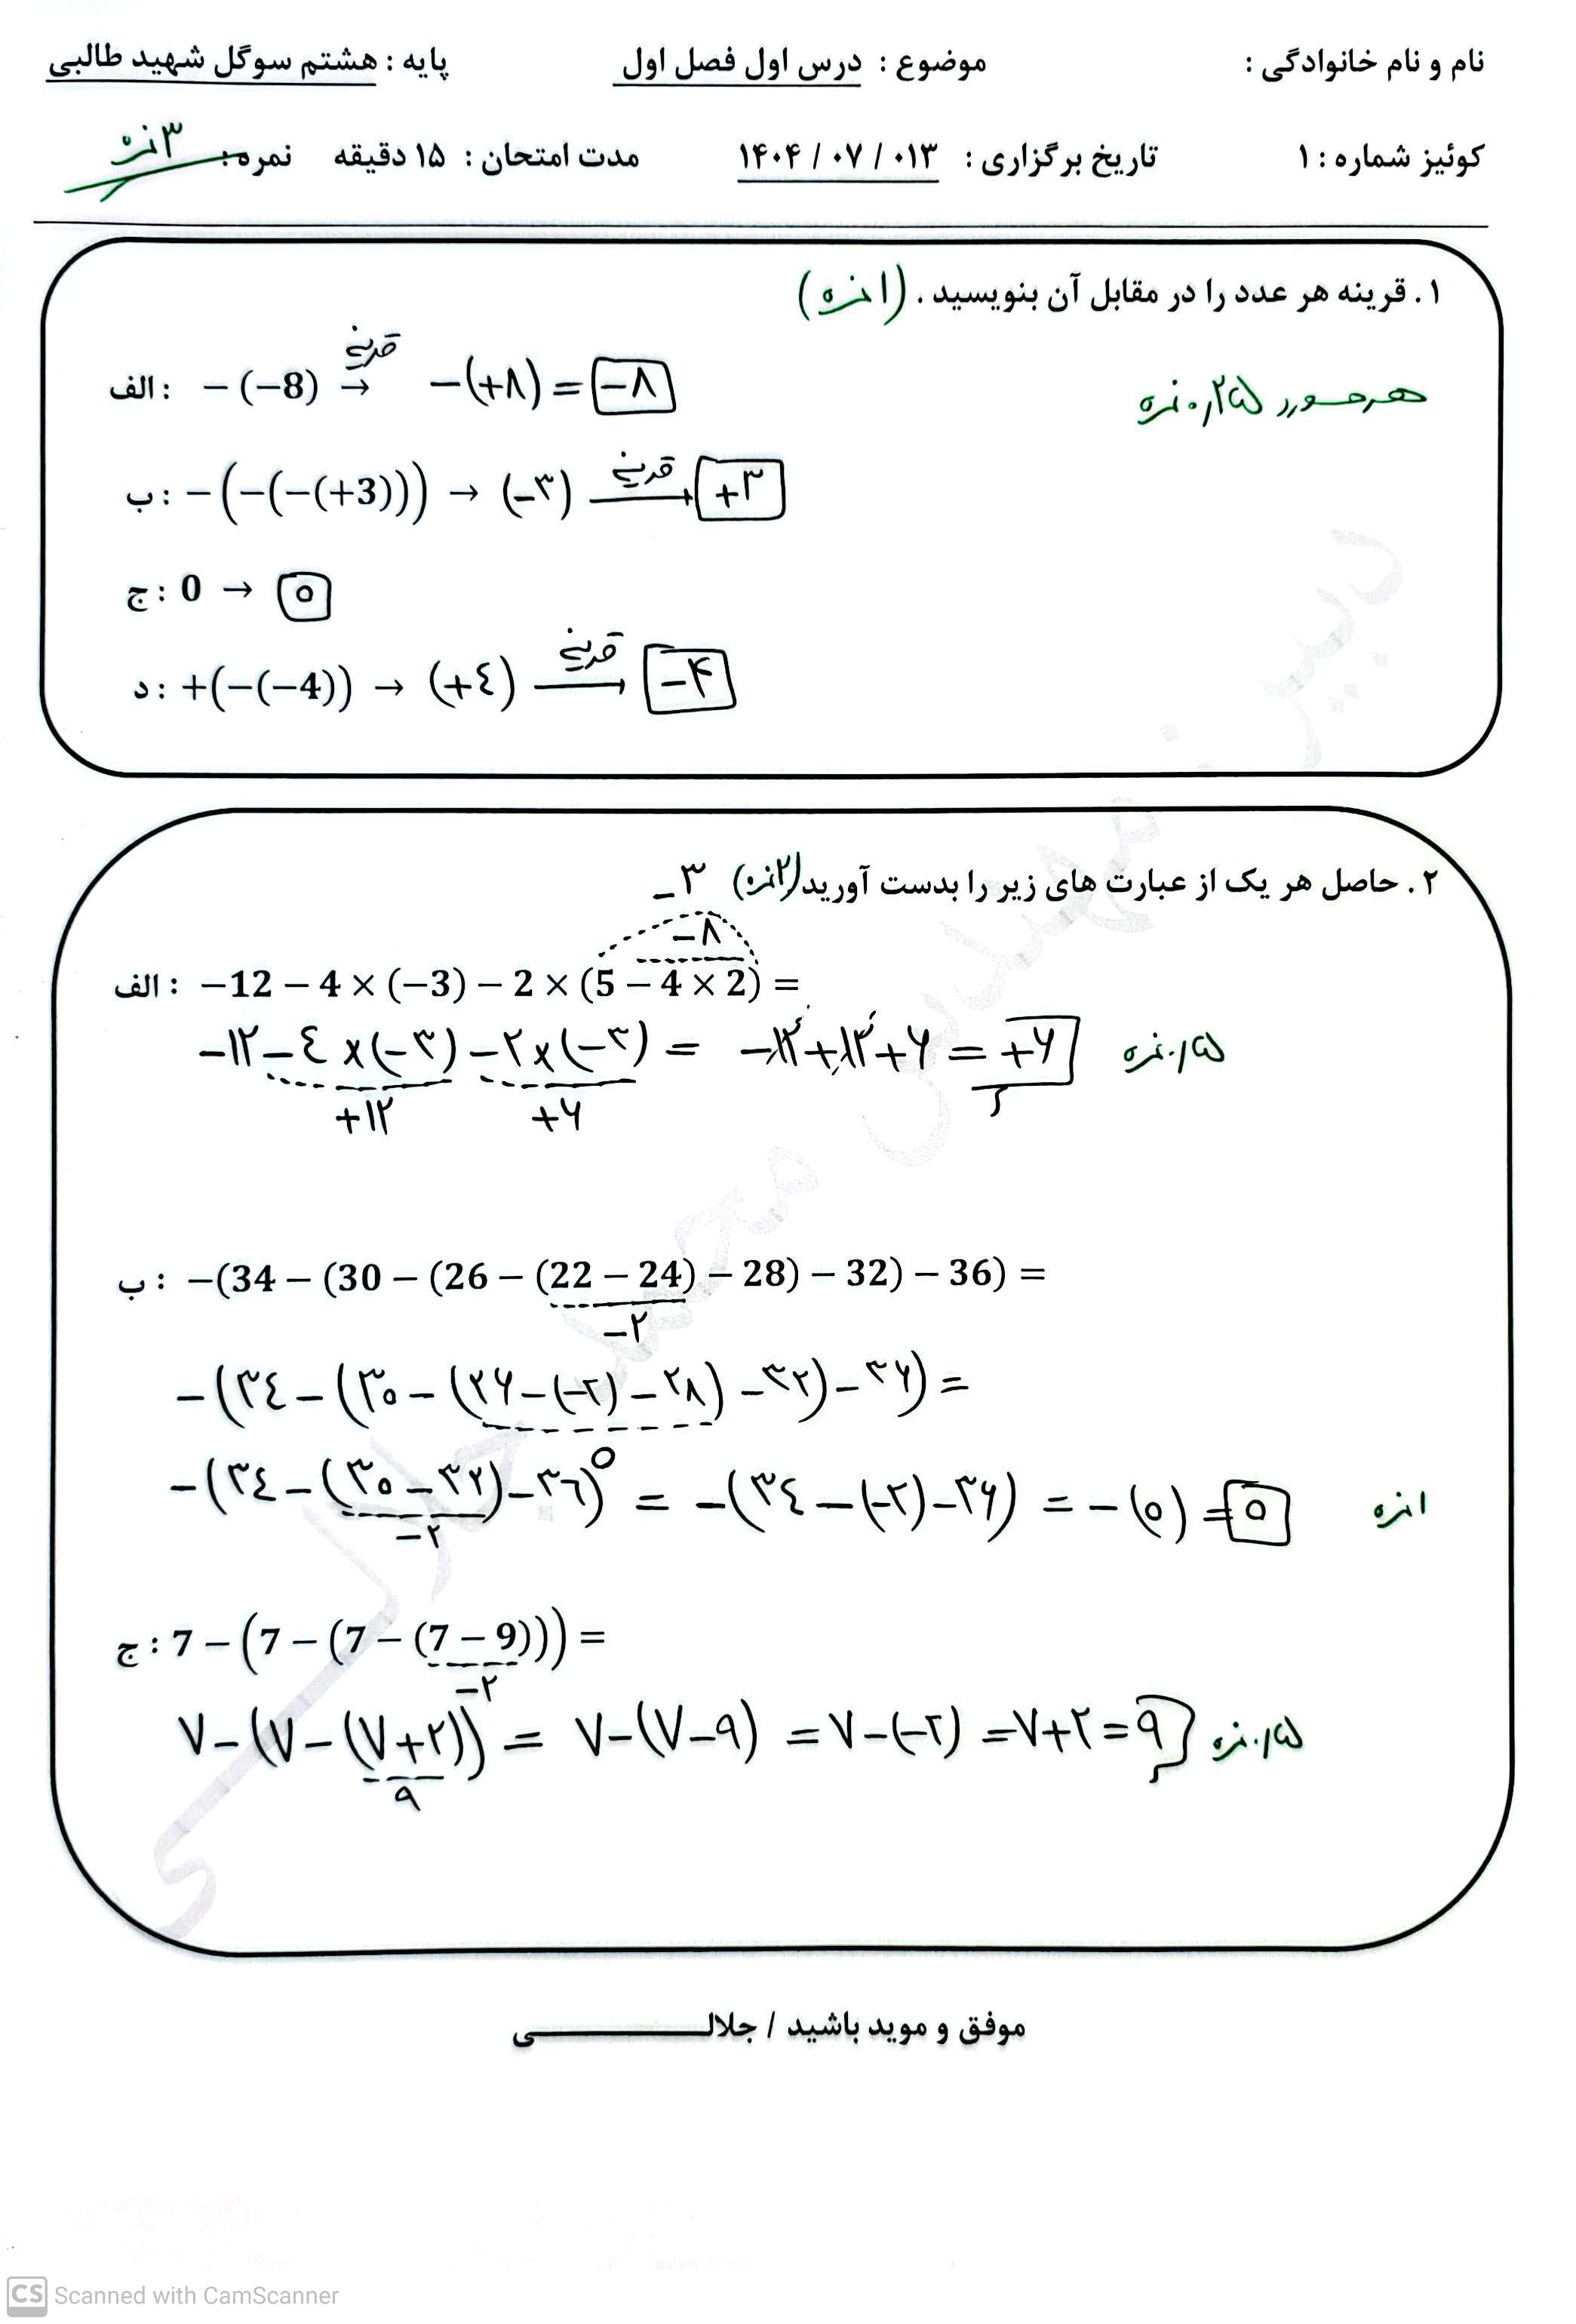 نام و نام خانوادگی : موضوع : درس اول فصل اول پایه : هشتم سوگل شهید طالبی
کوئیز شماره : ۱ تاریخ برگزاری : ۰۱۳ / ۰۷ / ۱۴۰۴ مدت امتحان : ۱۵ دقیقه نمره: ۳ نمره
۱. قرینه هر عدد را در مقابل آن بنویسید . (۱ نمره)
هر مورد ۰٫۲۵ نمره
الف : −(−8) → قرینه −(+۸) = −۸
ب : −(−(−(+3))) → (−۳) قرینه → +۳
ج : 0 → ۰
د : +(−(−4)) → (+٤) قرینه → −۴
۲. حاصل هر یک از عبارت های زیر را بدست آورید (۲ نمره)
−۳
−۸
الف : −12 − 4 × (−3) − 2 × (5 − 4 × 2) =
−۱۲ − ٤ × (−۳) − ۲ × (−۳) = −۱۲ + ۱۲ + ۶ = +۶ ۰٫۵ نمره
+۱۲ +۶
ب : −(34 − (30 − (26 − (22 − 24) − 28) − 32) − 36) =
−۲
−(۳٤ − (۳۰ − (۲۶ − (−۲) − ۲۸) − ۳۲) − ۳۶) =
۰
−(۳٤ − (۳۰ − ۳۲) − ۳٦) = −(۳٤ − (−۲) − ۳۶) = −(۰) = ۰ ۱ نمره
−۲
ج : 7 − (7 − (7 − (7 − 9))) =
−۲
۷ − (۷ − (۷ + ۲)) = ۷ − (۷ − ۹) = ۷ − (−۲) = ۷ + ۲ = ۹ ۰٫۵ نمره
۹
موفق و موید باشید / جلالــــــــی
دبیر : مهندس محمد جلالی
CS Scanned with CamScanner